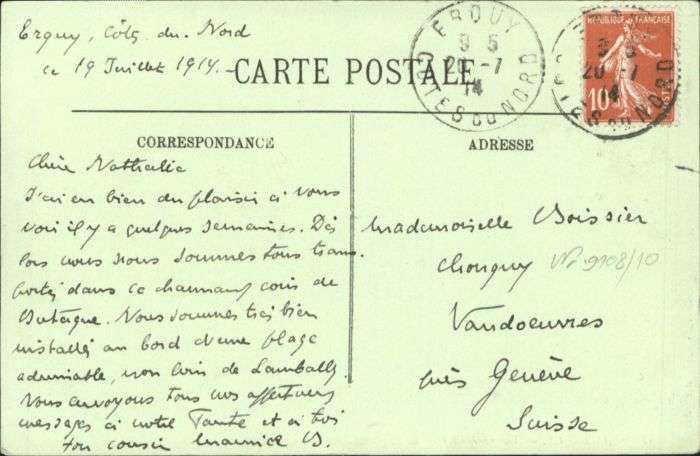 Erquy, Côtes du Nord
ce 19 Juillet 1914.
CARTE POSTALE
ERQUY
9 5
20 -7
14
COTES DU NORD
REPUBLIQUE FRANÇAISE
10
9 5
20 -7
14
NORD
CORRESPONDANCE
ADRESSE
Chère Nathalie
J'ai eu bien du plaisir à vous
voir il y a quelques semaines. Dès
lors nous nous sommes tous trans-
portés dans ce charmant coin de
Bretagne. Nous sommes très bien
installés au bord d'une plage
admirable, non loin de Lamballe
Nous envoyons tous nos affectueux
messages à votre Tante et à toi
ton cousin Maurice B.
Mademoiselle Boissier
Chougny
No 9108/10
Vandoeuvres
près Genève
Suisse